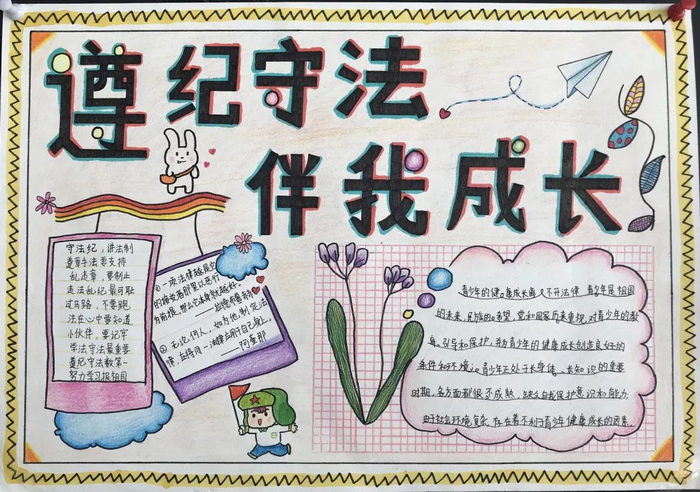 遵纪守法
伴我成长
守法纪，讲法制
遵章手法要支持
乱走章，要制止
走法乱纪最可耻
过马路，不要跑
法在心中要知道
小伙伴，要记牢
学法守法最重要
遵纪守法数第一
努力学习报祖国
① 一次法律越是
为前提，那么它本身就越好。
② 无论何人，如为他人制定法
律，应将同一法律应用于自己身上。
——阿奎那
青少年的健康成长离不开法律 青少年是祖国
的未来，民族的希望，党和国家历来重视对青少年的教
育、引导和保护，并为青少年的健康成长创造良好的
条件和环境，青少年正处于长身体、长知识的重要
时期，各方面都很不成熟，缺乏自我保护意识和能力，
由于社会环境复杂，存在着不利于青少年健康成长的因素.